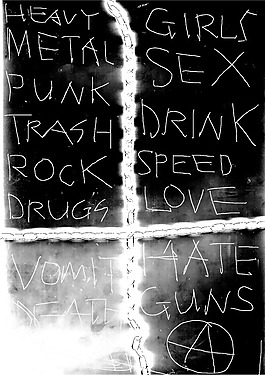 HEAVY
METAL
PUNK
TRASH
ROCK
DRUGS
VOMIT
DEATH
GIRLS
SEX
DRINK
SPEED
LOVE
HATE
GUNS